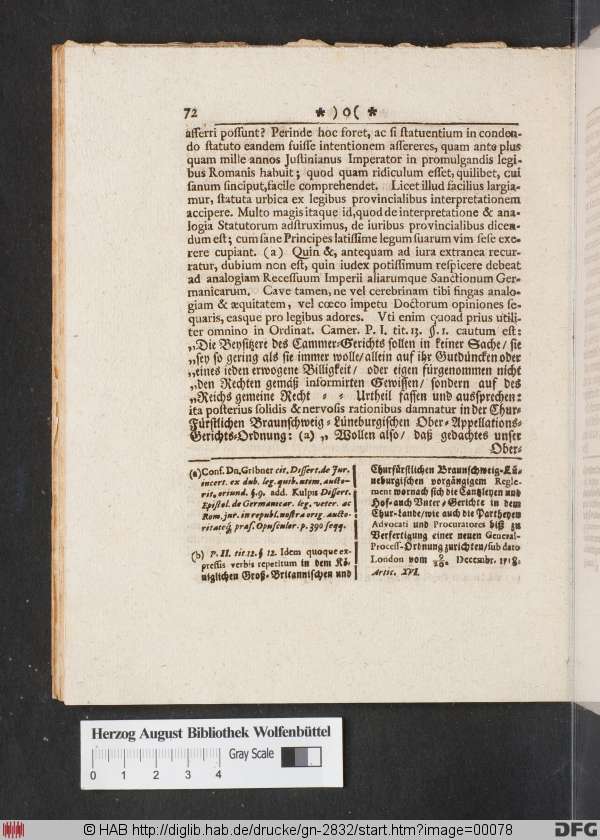 72 * ) o ( *
asserri possunt? Perinde hoc foret, ac si statuentium in conden-
do statuto eandem fuisse intentionem assereres, quam ante plus
quam mille annos Justinianus Imperator in promulgandis legi-
bus Romanis habuit; quod quam ridiculum esset, quilibet, cui
sanum sinciput, facile comprehendet. Licet illud facilius largia-
mur, statuta urbica ex legibus provincialibus interpretationem
accipere. Multo magis itaque id, quod de interpretatione & ana-
logia Statutorum adstruximus, de iuribus provincialibus dicen-
dum est; cum sane Principes latissime legum suarum vim sese exe-
rere cupiant. (a) Quin &, antequam ad iura extranea recur-
ratur, dubium non est, quin iudex potissimum respicere debeat
ad analogiam Recessuum Imperii aliarumque Sanctionum Ger-
manicarum. Cave tamen, ne vel cerebrinam tibi fingas analo-
giam & æquitatem, vel cœco impetu Doctorum opiniones se-
quaris, easque pro legibus adores. Vti enim quoad prius utili-
ter omnino in Ordinat. Camer. P. I. tit. 13. §. 1. cautum est:
„Die Beysitzere des Cammer-Gerichts sollen in keiner Sache/ sie
„sey so gering als sie immer wolle/ allein auf ihr Gutdüncken oder
„eines jeden erwogene Billigkeit/ oder eigen fürgenommen nicht
„den Rechten gemäß informirten Gewissen/ sondern auf des
„Reichs gemeine Recht - - Urtheil fassen und aussprechen:
ita posterius solidis & nervosis rationibus damnatur in der Chur-
Fürstlichen Braunschweig-Lüneburgischen Ober-Appellations-
Gerichts-Ordnung: (a) „ Wollen also/ daß gedachtes unser
Ober-
(a) Conf. Dn. Gribner cit. Dissert. de Jur.
incert. ex dub. leg. quib. utim. aucto-
rit. oriund. §. 9. add. Kulpis Dissert.
Epistol. de Germanicar. leg. veter. ac
Rom. jur. in republ. nostra orig. aucto-
ritateq; præs. Opuscular. p. 390 seqq.
(b) P. II. tit. 12. § 12. Idem quoque ex-
pressis verbis repetitum in dem Kö-
niglichen Groß-Britannischen und
Churfürstlichen Braunschweig-Lü-
neburgischen vorgängigem Regle-
ment wornach sich die Cantzleyen und
Hof- auch Unter-Gerichte in dem
Chur-Lande/ wie auch die Partheyen
Advocati und Procuratores biß zu
Verfertigung einer neuen General-
Process-Ordnung zurichten/ sub dato
London vom 9/20. Decembr. 1718.
Artic. XVI.
Herzog August Bibliothek Wolfenbüttel
0 1 2 3 4 Gray Scale
© HAB http://diglib.hab.de/drucke/gn-2832/start.htm?image=00078
DFG